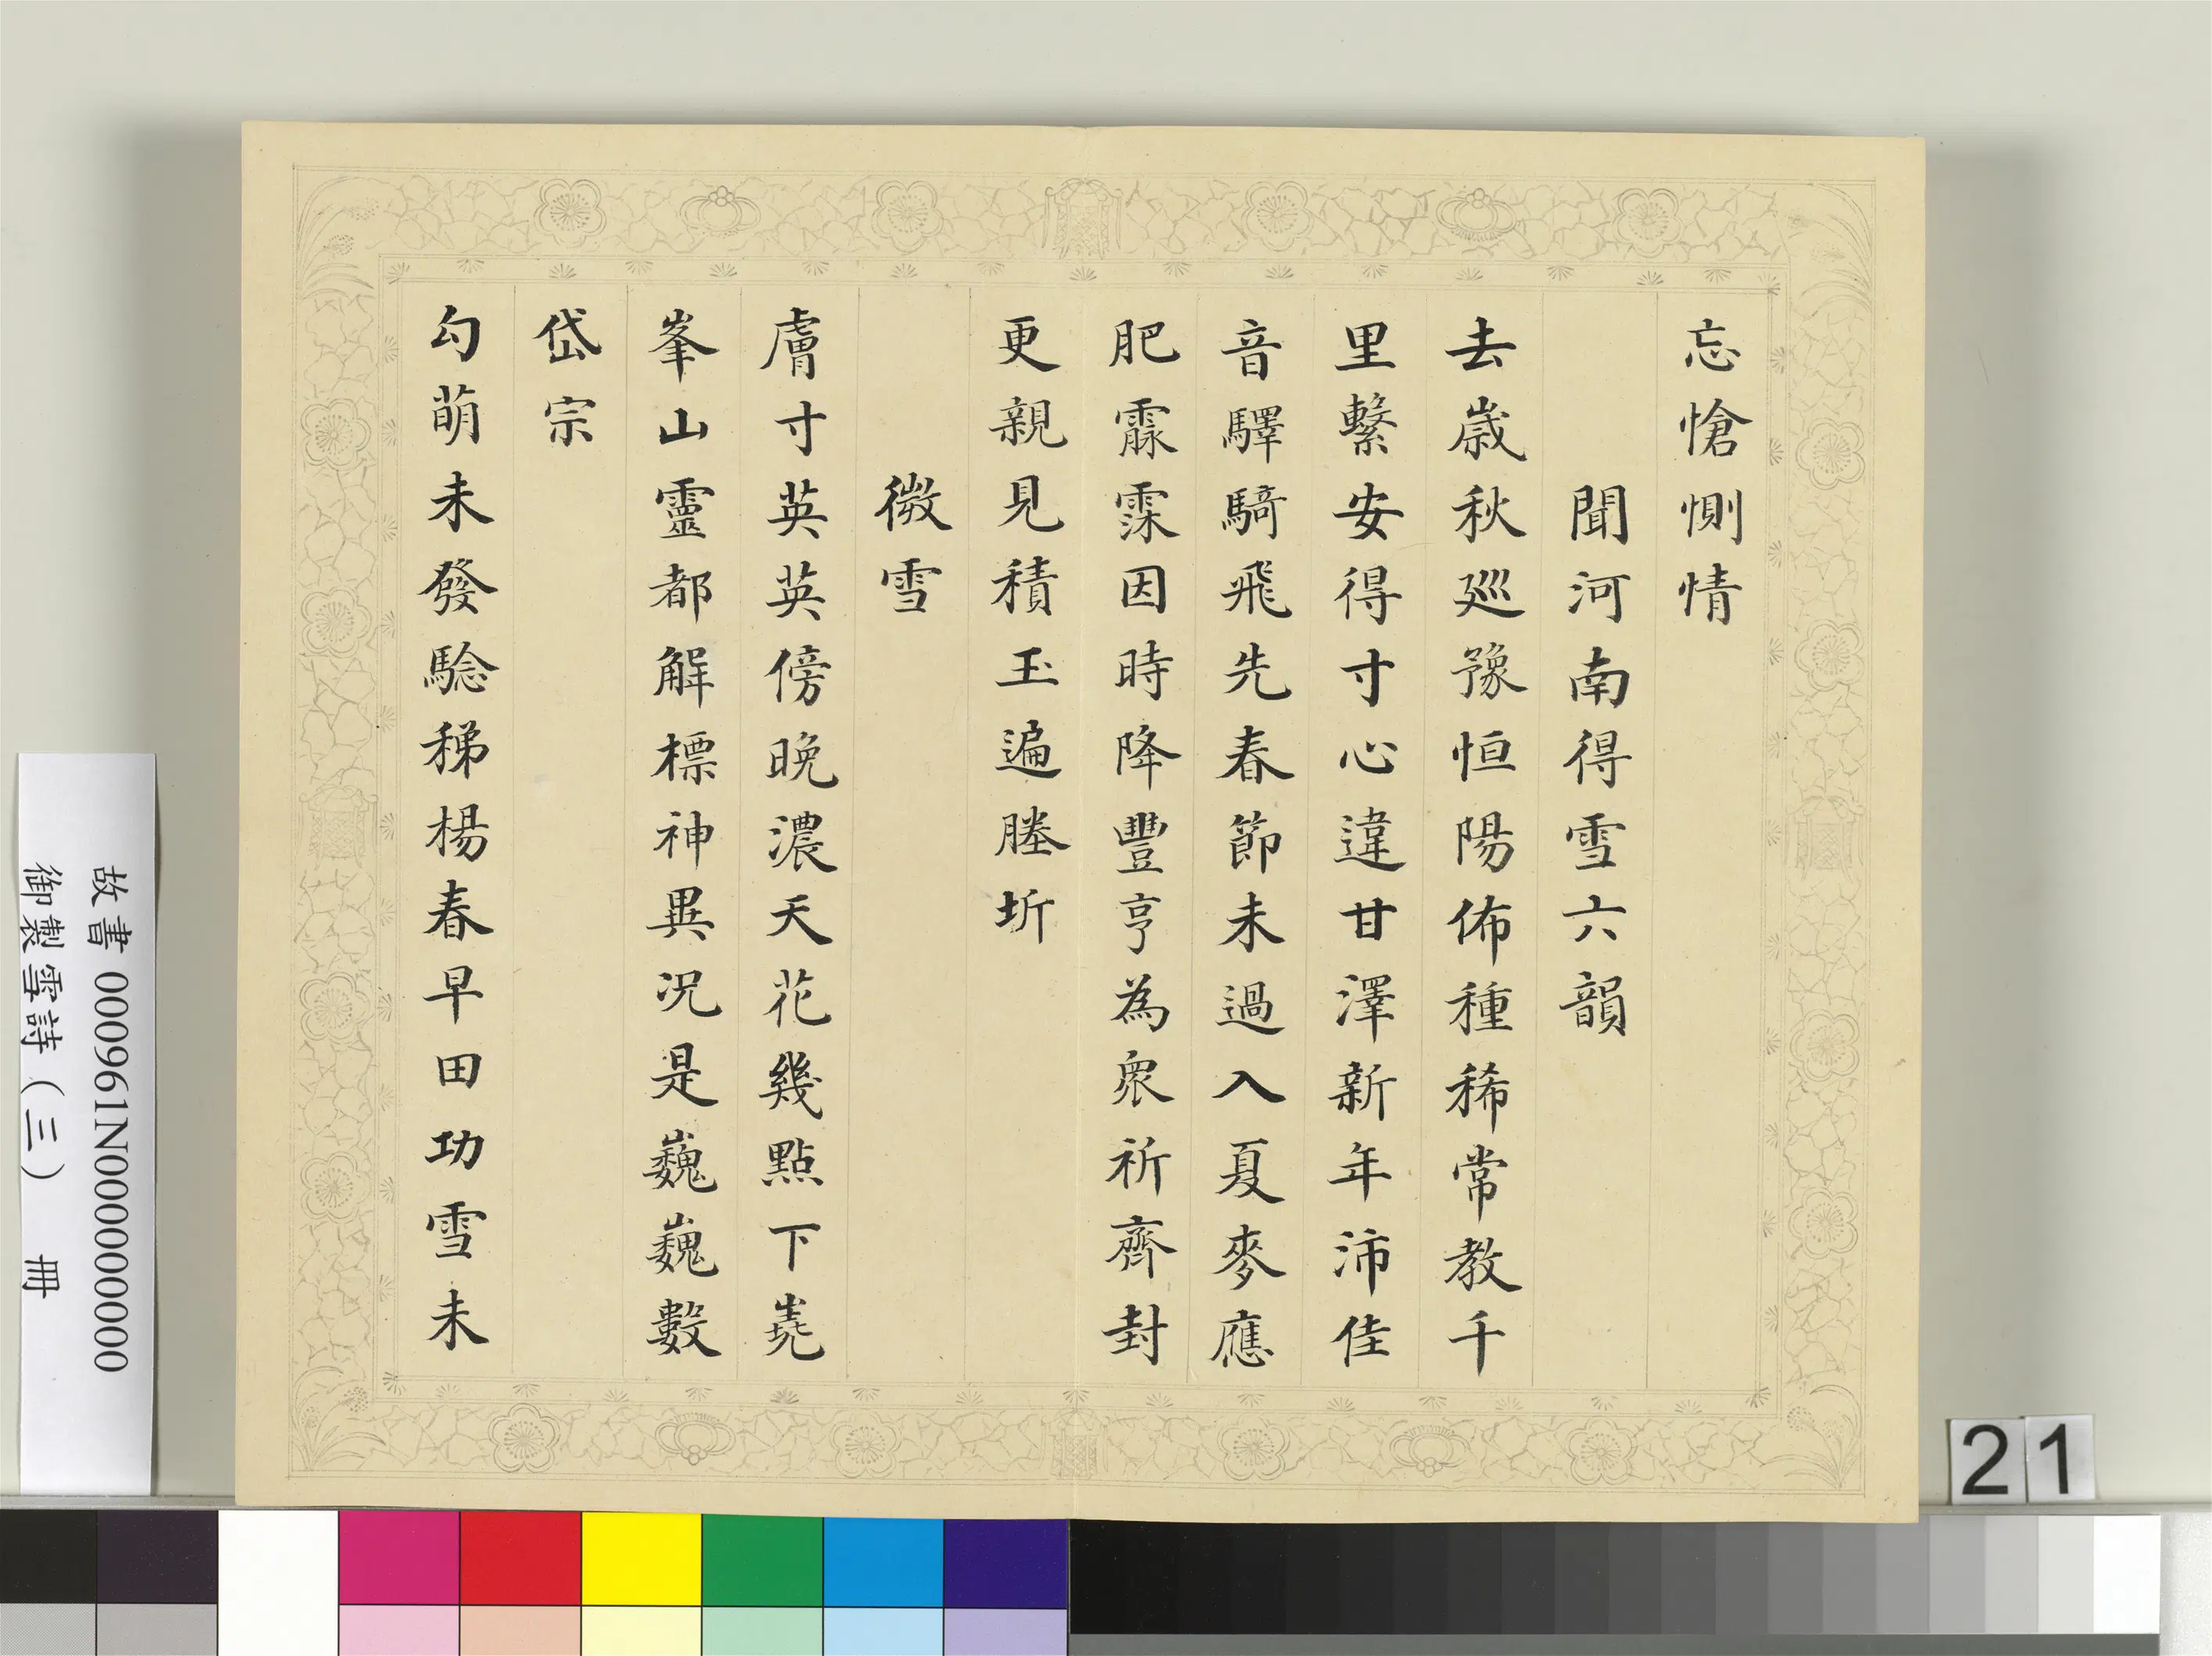 忘愴惻情
聞河南得雪六韻
去歲秋廵豫恒陽佈種稀常教千
里繫安得寸心違甘澤新年沛佳
音驛騎飛先春節未過入夏麥應
肥霢霂因時降豐亨為衆祈齊封
更親見積玉遍塍圻
微雪
膚寸英英傍晚濃天花幾點下嶤
峯山靈都解標神異况是巍巍數
岱宗
勾萌未發騐稊楊春早田功雪未
故書 000961N000000000
御製雪詩（三） 冊
21